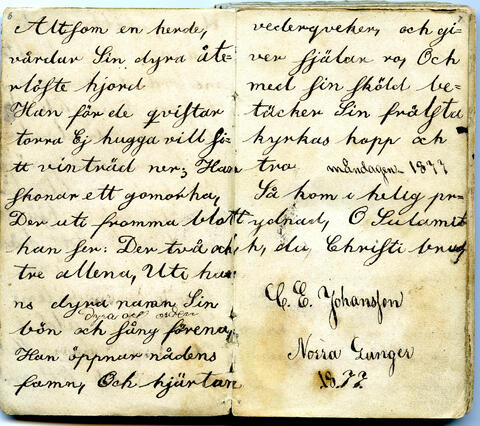 6
Altsom en herde,
vårdar Sin dyra åte-
rlöste hjord
Han för de qvistar
torra Ej hugga vill si-
tt vinträd ner; Han
skonar ett gomorha,
Der uti fromma blott
han ser: Der två och
tre allena, Uti ha
ns dyra namn Sin
dyra och
bön och sång förena,
Han öppnar nådens
famn, Och hjärtan
vederqveker, och gi-
ver själar ro, Och
med sin sköld be-
täcker Sin frälsta
kyrkas hopp och
tro måndagen 1877
Så kom i helig pr-
ydnad, O Sulamit
h, du, Christi brud
C. E. Johansson
Norra Gunger
1877